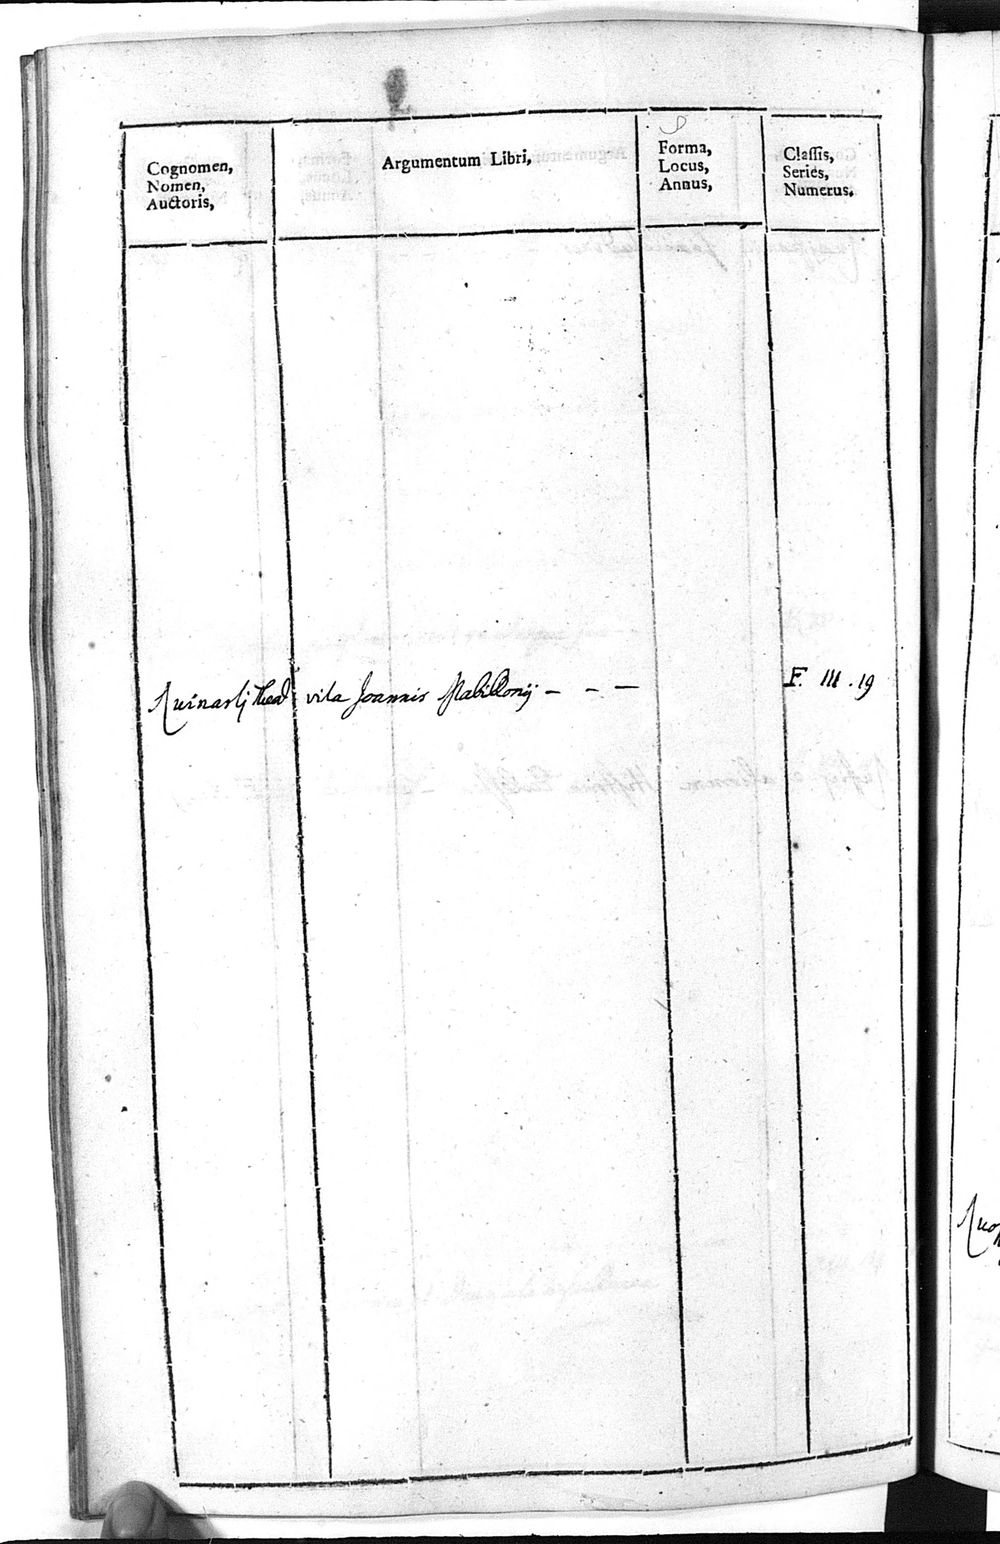 Cognomen,
Nomen,
Auctoris,
Argumentum Libri,
Forma,
Locus,
Annus,
Classis,
Series,
Numerus.
Ruinartij Thead vita Joannis Mabillonij - - - F. III. 19